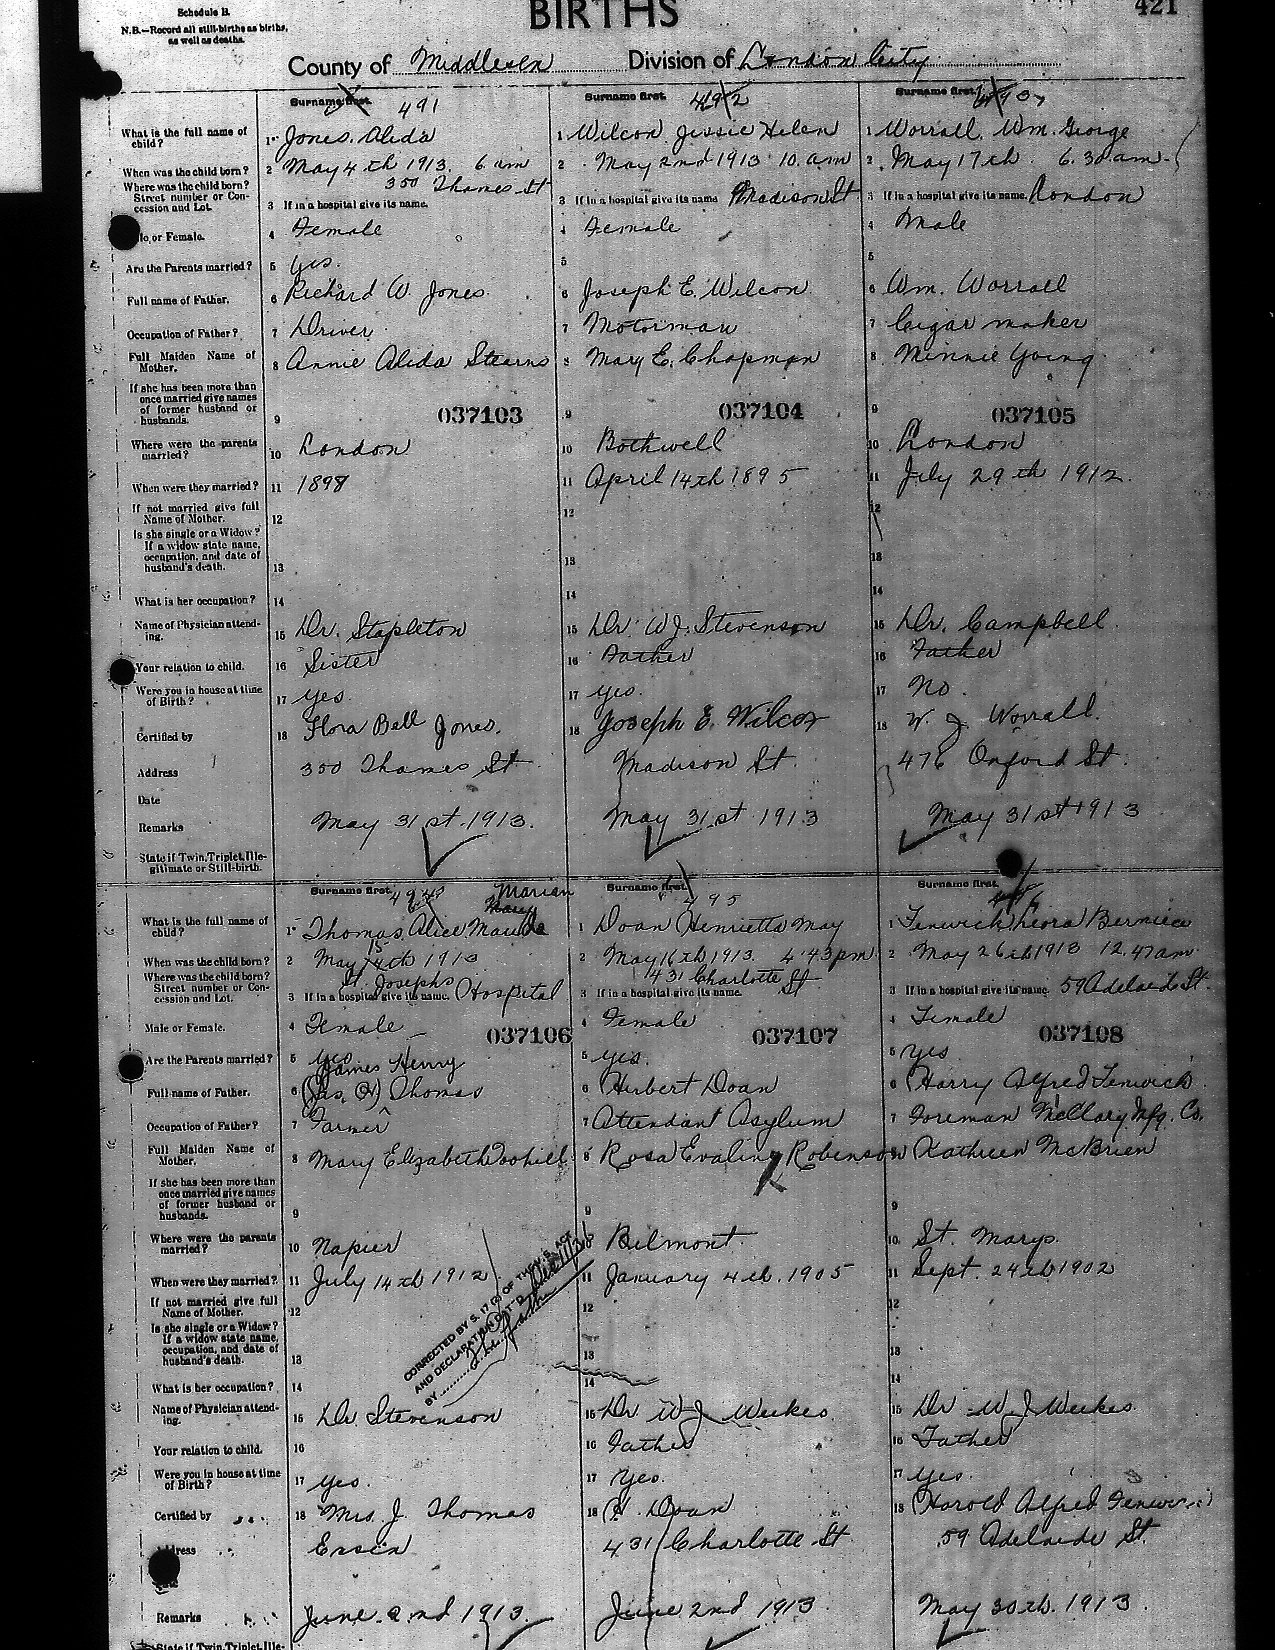 Schedule B.
BIRTHS
421
N.B.—Record all still-births as births,
as well as deaths.
County of Middlesex Division of London City
Surname first. 491
Surname first. 492
Surname first.
What is the full name of child? 1 Jones, Alida
1 Wilcox Jessie Helen
1 Worrall, Wm. George
When was the child born? 2 May 4th 1913. 6 am
2 May 2nd 1913 10. am
2 May 17th 6.30 am.
Where was the child born? Street number or Concession and Lot. 350 Thames St
3 If in a hospital give its name.
3 If in a hospital give its name Madison St
3 If in a hospital give its name. London
le or Female. 4 Female
4 Female
4 Male
Are the Parents married? 5 yes.
5
5
Full name of Father. 6 Richard W. Jones
6 Joseph E. Wilcox
6 Wm. Worrall
Occupation of Father? 7 Driver
7 Motorman
7 Cigar maker
Full Maiden Name of Mother. 8 Annie Alida Stearns
8 Mary E. Chapman
8 Minnie Young
If she has been more than once married give names of former husband or husbands. 9 037103
9 037104
9 037105
Where were the parents married? 10 London
10 Bothwell
10 London
When were they married? 11 1898
11 April 14th 1895
11 July 29th 1912.
If not married give full Name of Mother. 12
12
12
Is she single or a Widow? If a widow state name, occupation, and date of husband's death. 13
13
13
What is her occupation? 14
14
14
Name of Physician attending. 15 Dr. Stapleton
15 Dr. W.J. Stevenson
15 Dr. Campbell
Your relation to child. 16 Sister
16 Father
16 Father
Were you in house at time of Birth? 17 yes
17 yes.
17 No.
Certified by 18 Flora Bell Jones.
18 Joseph E. Wilcox
18 W. J. Worrall.
Address 350 Thames St
Madison St.
476 Oxford St.
Date
Remarks May 31st. 1913.
May 31st 1913
May 31st 1913
State if Twin, Triplet, Illegitimate or Still-birth.
Surname first. Marian
Surname first. 495
Surname first.
Mary
What is the full name of child? 1 Thomas, Alice Maude
1 Doan Henrietta May
1 Fenwick, Leora Berniece
15
When was the child born? 2 May 4th 1913
2 May 16th 1913. 4.43 pm
2 May 26th 1913 12.47 am
Where was the child born? Street number or Concession and Lot. St. Josephs
431 Charlotte St
3 If in a hospital give its name. Hospital
3 If in a hospital give its name.
3 If in a hospital give its name. 59 Adelaide St.
Male or Female. 4 Female 037106
4 Female 037107
4 Female 037108
Are the Parents married? 5 yes
5 yes.
5 yes
James Henry
Full name of Father. 6 (Jas. H) Thomas
6 Herbert Doan
6 Harry Alfred Fenwick
Occupation of Father? 7 Farmer
7 Attendant Asylum
7 Foreman McClary Mfg. Co.
Full Maiden Name of Mother. 8 Mary Elizabeth Toohill
8 Rosa Evaline Robinson
8 Kathleen McBrien
If she has been more than once married give names of former husband or husbands. 9
9
9
Where were the parents married? 10 Napier
10 Belmont
10 St. Marys.
When were they married? 11 July 14th 1912
11 January 4th. 1905
11 Sept. 24th 1902
If not married give full Name of Mother. 12
12
12
CORRECTED BY S. 17 (2) OF THE V. S. ACT
AND DECLARATION DAT'D
BY
Is she single or a Widow? If a widow state name, occupation, and date of husband's death. 13
13
13
What is her occupation? 14
14
14
Name of Physician attending. 15 Dr Stevenson
15 Dr W J Weekes
15 Dr. W. J Weekes
Your relation to child. 16
16 Father
16 Father
Were you in house at time of Birth? 17 yes.
17 Yes.
17 yes.
Certified by 18 Mrs. J. Thomas
18 H. Doan
18 Harold Alfred Fenwick
dress
431 Charlotte St
59 Adelaide St.
Remarks June 2nd 1913.
June 2nd 1913
May 30th. 1913.
State if Twin, Triplet, Ille-